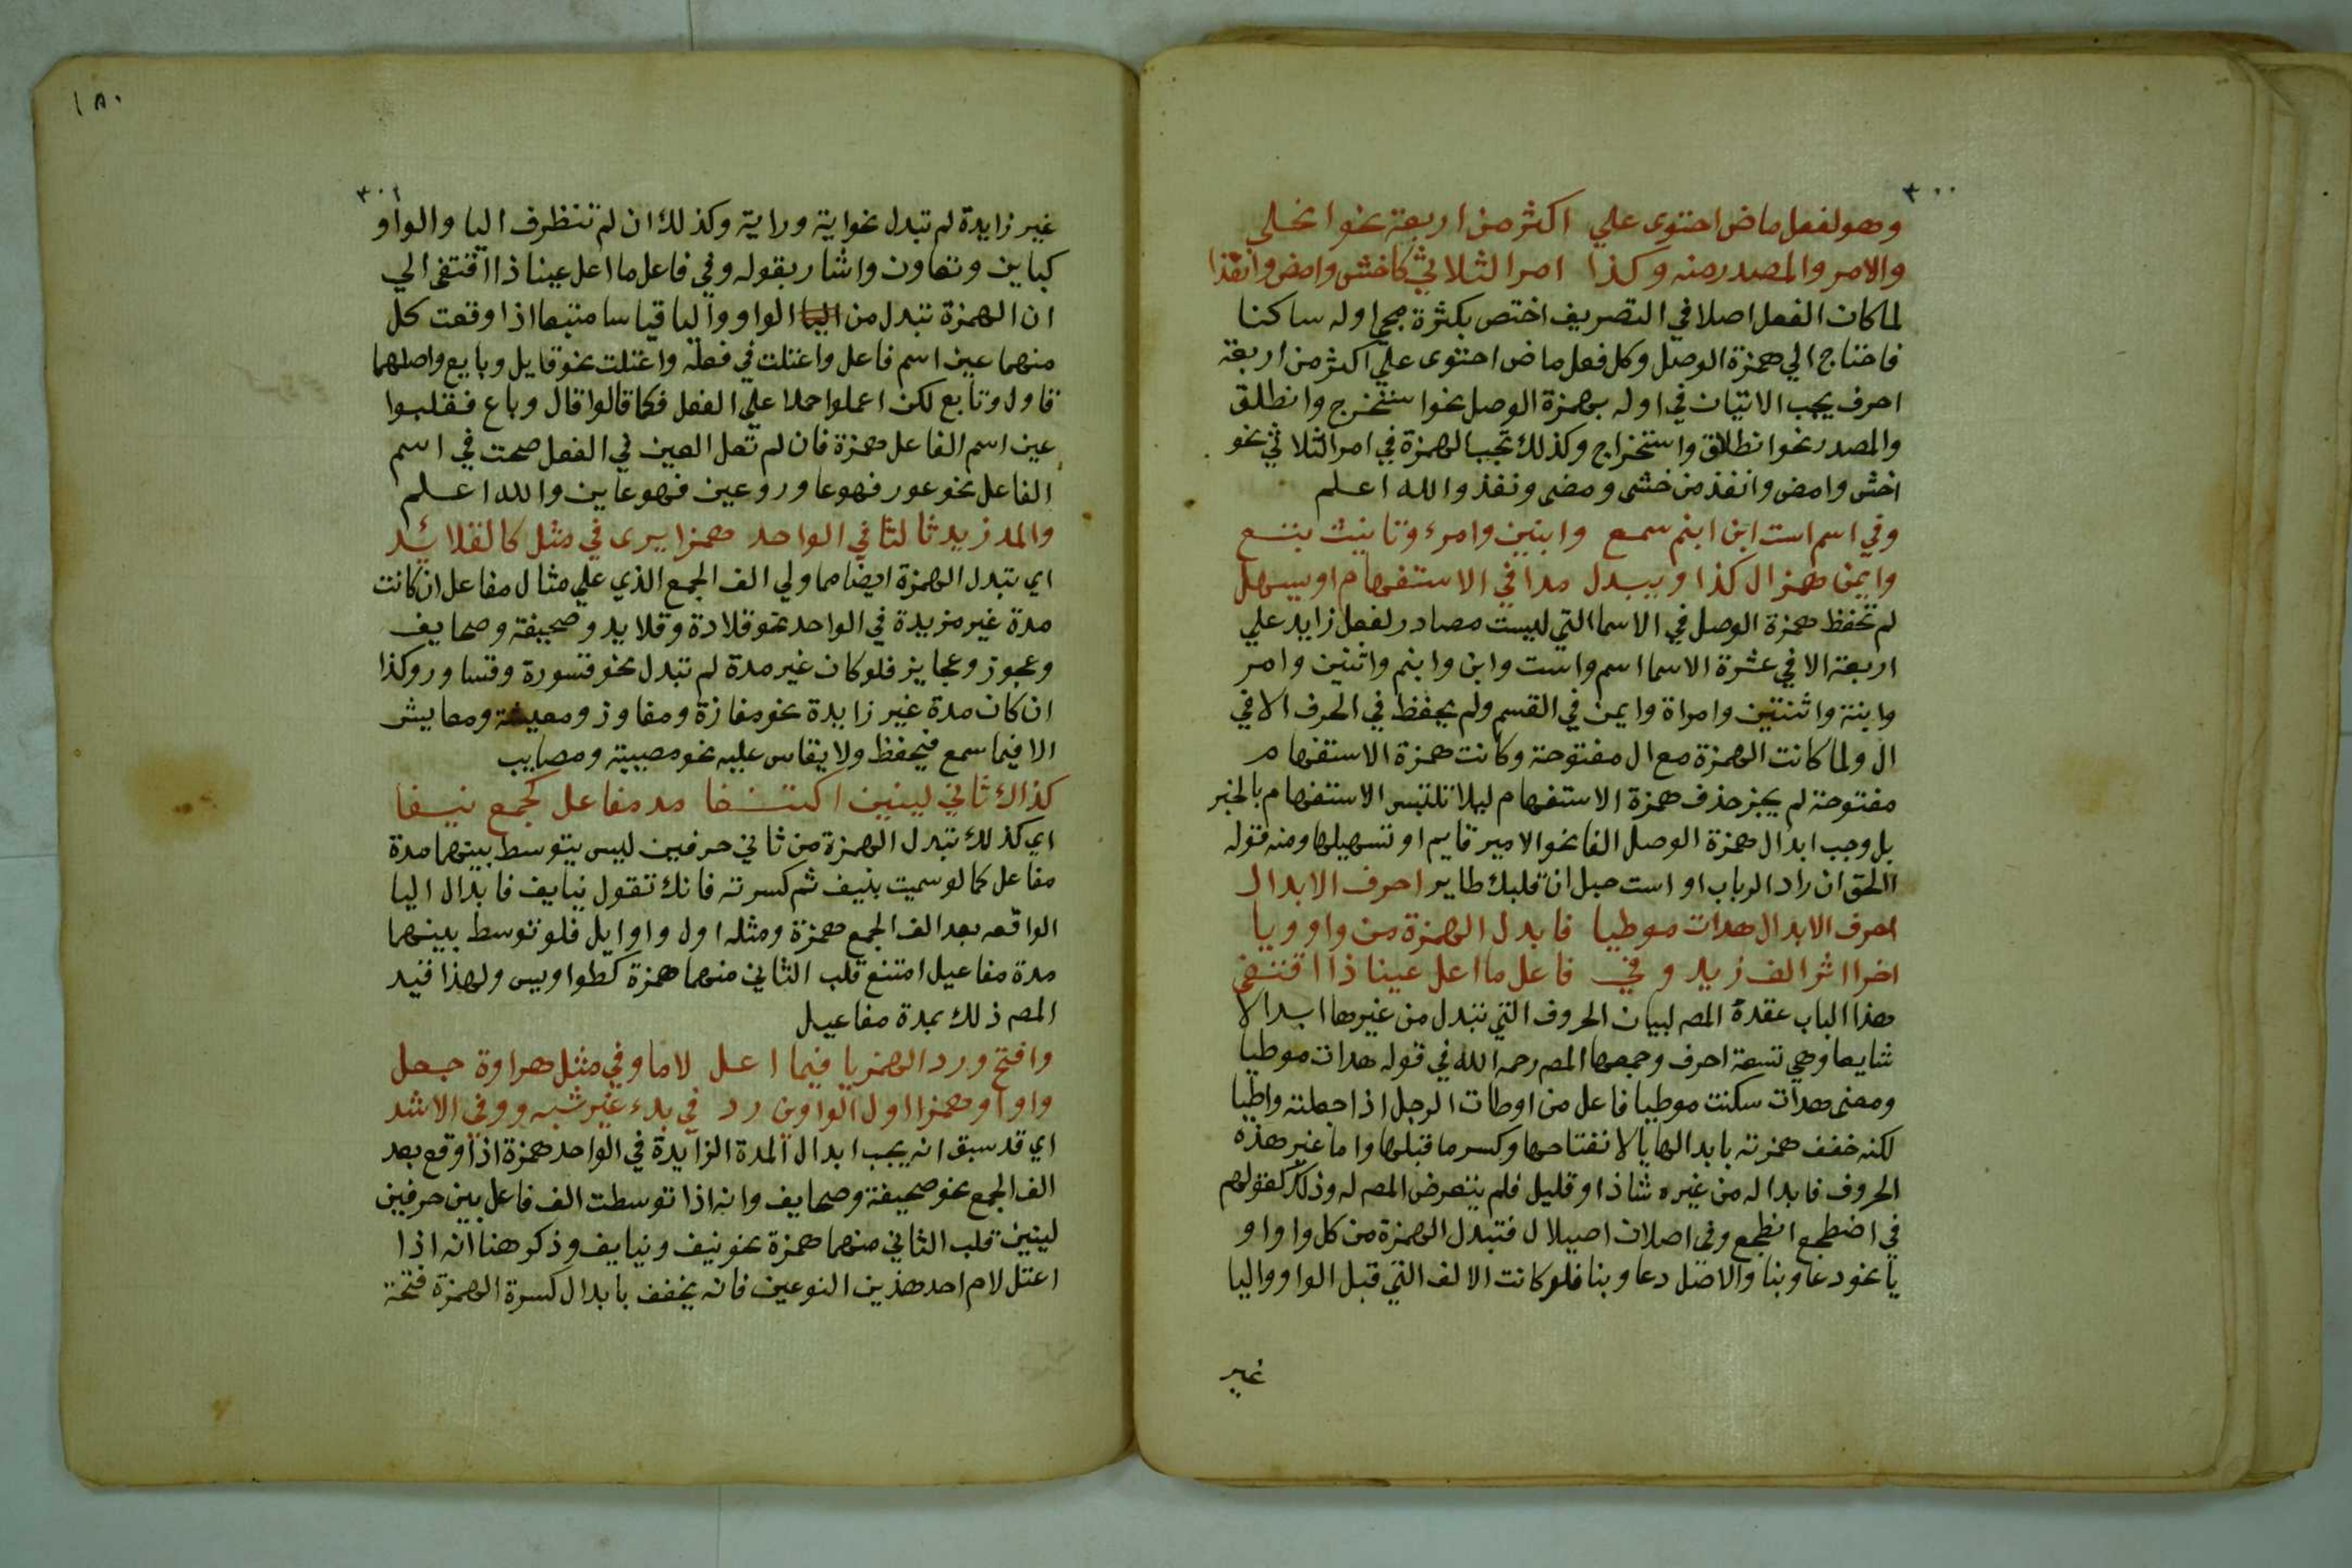 ٣٠٠
وهو لفعل ماض احتوى علي اكثر من اربعة نحو انجلي
والامر والمصدر منه وكذا امر الثلاثي كاخش وامض وانفذا
لما كان الفعل اصلا في التصريف اختص بكثرة مجي اوله ساكنا
فاحتاج الي همزة الوصل وكل فعل ماض احتوى علي اكثر من اربعة
احرف يجب الاتيان في اوله بهمزة الوصل نحو استخرج وانطلق
والمصدر نحو انطلاق واستخراج وكذلك تجب الهمزة في امر الثلاثي نحو
اخش وامض وانفذ من خشي ومضى ونفذ والله اعلم
وفي اسم است ابن ابنم سمع واثنين وامرء وتانيث بتبع
وايمن همز ال كذا ويبدل مدا في الاستفهام او يسهل
لم تحفظ همزة الوصل في الاسما التي ليست مصادر لفعل زايد علي
اربعة الا في عشرة الاسما اسم واست وابن وابنم واثنين وامر
وابنة واثنتين وامراة وايمن في القسم ولم يحفظ في الحرف الا في
ال ولما كانت الهمزة مع ال مفتوحة وكانت همزة الاستفهام
مفتوحة لم يجز حذف همزة الاستفهام ليلا تلتبس الاستفهام بالخبر
بل وجب ابدال همزة الوصل الفا نحو الامير قايم او تسهيلها ومنه قوله
االحق ان راد الرباب او است حبل ان قلبك طاير احرف الابدال
احرف الابدال هدات موطيا فابدل الهمزة من واو ويا
اخرا اثر الف زيد وفي فاعل ما اعل عينا ذا اقتفي
هذا الباب عقده المصه لبيان الحروف التي تبدل من غيرها ابدالا
شايعا وهي تسعة احرف وجمعها المصه رحمه الله في قوله هدات موطيا
ومعنى هدات سكنت موطيا فاعل من اوطات الرجل اذا جعلته واطيا
لكنه خفف همزته بابدالها يا لانفتاحها وكسر ما قبلها واما غير هذه
الحروف فابداله من غيره شاذ او قليل فلم يتعرض المصه له وذلك كقولهم
في اضطجع الطجع وفي اصلان اصيلال فتبدل الهمزة من كل واو او
يا نحو دعا وبنا والاصل دعاو وبنا فلو كانت الالف التي قبل الواو واليا
غير
١٨٠
٣٠١
غير زايدة لم تبدل نحو اية وراية وكذلك ان لم تتظرف اليا والواو
كباين وتعاون واشار بقوله وفي فاعل ما اعل عينا ذا اقتفى الي
ان الهمزة تبدل من اليا الواو واليا قياسا متبعا اذا وقعت كل
منهما عين اسم فاعل واعتلت في فعله واعتلت نحو قايل وبايع واصلهما
قاول وتابع لكن اعملوا حملا علي الفعل فكما قالوا قال وباع فقلبوا
عين اسم الفاعل همزة فان لم تعل العين في الفعل صحت في اسم
الفاعل نحو عور فهو عاور وعين فهو عاين والله اعلم
والمد زيد ثالثا في الواحد همزا يرى في مثل كالقلائد
اي تبدل الهمزة ايضا مما ولي الف الجمع الذي علي مثال مفاعل ان كانت
مدة غير مزيدة في الواحد نحو قلادة وقلايد وصحيفة وصحايف
وعجوز وعجايز فلو كان غير مدة لم تبدل نحو قسورة وقساور وكذا
ان كان مدة غير زايدة نحو مفازة ومفاوز ومعيشة ومعايش
الا فيما سمع فيحفظ ولا يقاس عليه نحو مصيبة ومصايب
كذاك ثاني لينين اكتنفا مد مفاعل كجمع نيفا
اي كذلك تبدل الهمزة من ثاني حرفين ليس يتوسط بينهما مدة
مفاعل كما لو سميت بنيف ثم كسرته فانك تقول نيايف فابدال اليا
الواقعه بعد الف الجمع همزة ومثله اول واوايل فلو توسط بينهما
مدة مفاعيل امتنع قلب الثاني منهما همزة كطواويس ولهذا قيد
المصه ذلك بمدة مفاعيل
وافتح ورد الهمز يا فيما اعل لاما وفي مثل هراوة جعل
واوا وهمزا اول الواوين رد في بدء غير شبه ووفي الاشد
اي قد سبق انه يجب ابدال المدة الزايدة في الواحد همزة اذا وقع بعد
الف الجمع نحو صحيفة وصحايف وانه اذا توسطت الف فاعل بين حرفين
لينين قلب الثاني منهما همزة نحو نيف ونيايف وذكر هنا انه اذا
اعتل لام احد هذين النوعين فانه يخفف بابدال كسرة الهمزة فتحة